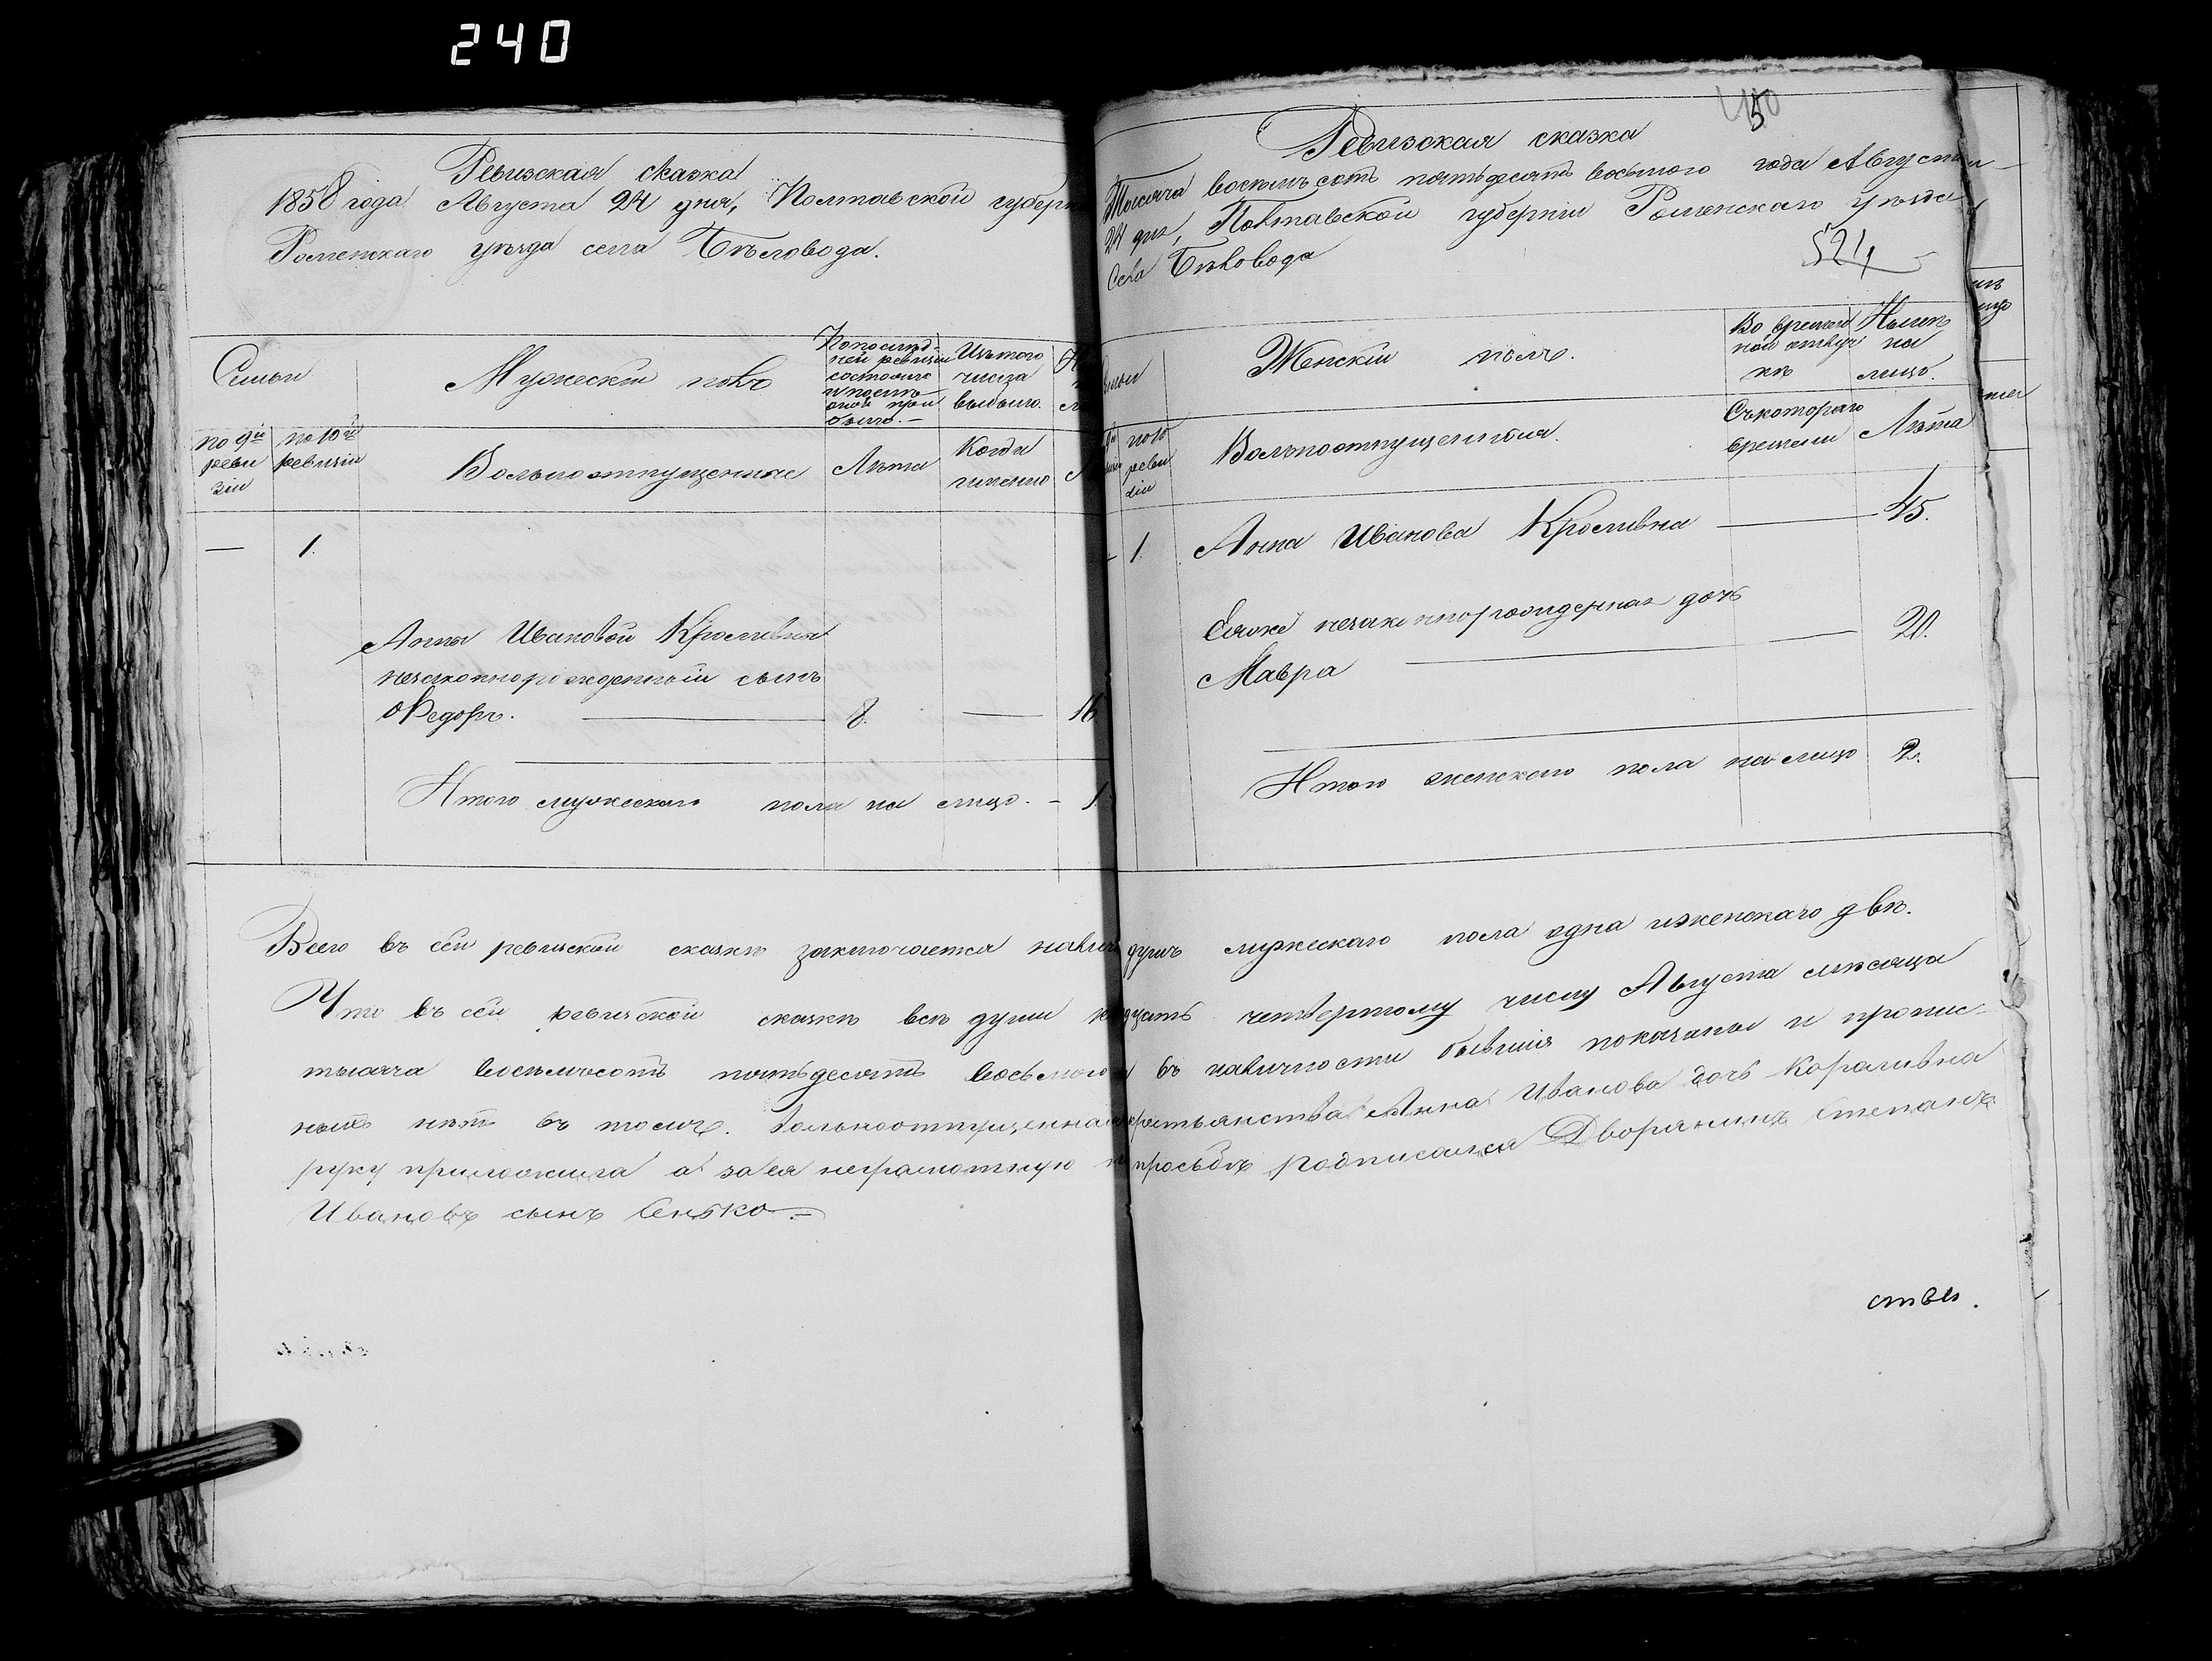 240
Ревизская сказка
1858 года Августа 24 дня, Полтавской губерн
Роменскаго уѣзда села Бѣловода.
Семьи
Мужескій полъ
По послѣд-
ней ревизіи
состояло
и послѣ
оной при
было.
Изъ того
числа
выбыло.
по 9й
реви
зіи
по 10й
ревизіи
Вольноотпущенные
Лѣта
Когда
именно
— 1.
Анны Ивановой Кроливны
незаконнорожденный сынъ
Ѳедоръ. — 8. — 16
Итого мужескаго пола на лицо. - 1.
50
Ревизская сказка
Тысяча восемьсотъ пятьдесятъ восьмого года Августа
24 дня, Полтавской губерніи Роменскаго уѣзда
Села Бѣловода
524
Женскій полъ.
Во времен
ной отлуч
кѣ
Нынѣ
на
лицо.
по 10
реви
зіи
Вольноотпущенныя.
Съ котораго
времени
Лѣта
1. Анна Иванова Кроливна — 45.
Ея же незаконнорожденная дочь
Мавра — 20.
Итого женскаго пола на лицо 2.
Всего въ сей ревизской сказкѣ заключается налич душъ мужескаго пола одна и женскаго двѣ.
Что въ сей ревизской сказкѣ всѣ души дцать четвертому числу Августа мѣсяца
тысяча восемьсотъ пятьдесятъ восьмого въ наличности бывшія показаны и пропис-
ныхъ нѣтъ въ томъ. Вольноотпущенная крестьянства Анна Иванова дочь Короливна
руку приложила а за ея неграмотную просьбѣ подписался Дворянинъ Степанъ
Ивановъ сынъ Сенько.